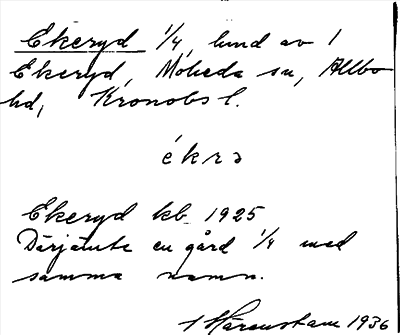 Ekeryd 1/4, lund av 1
Ekeryd, Moheda sn, Allbo
hd, Kronobs l.
ékrə
Ekeryd kb 1925
Därjämte en gård 1/4 med
samma namn.
Härenstam 1936